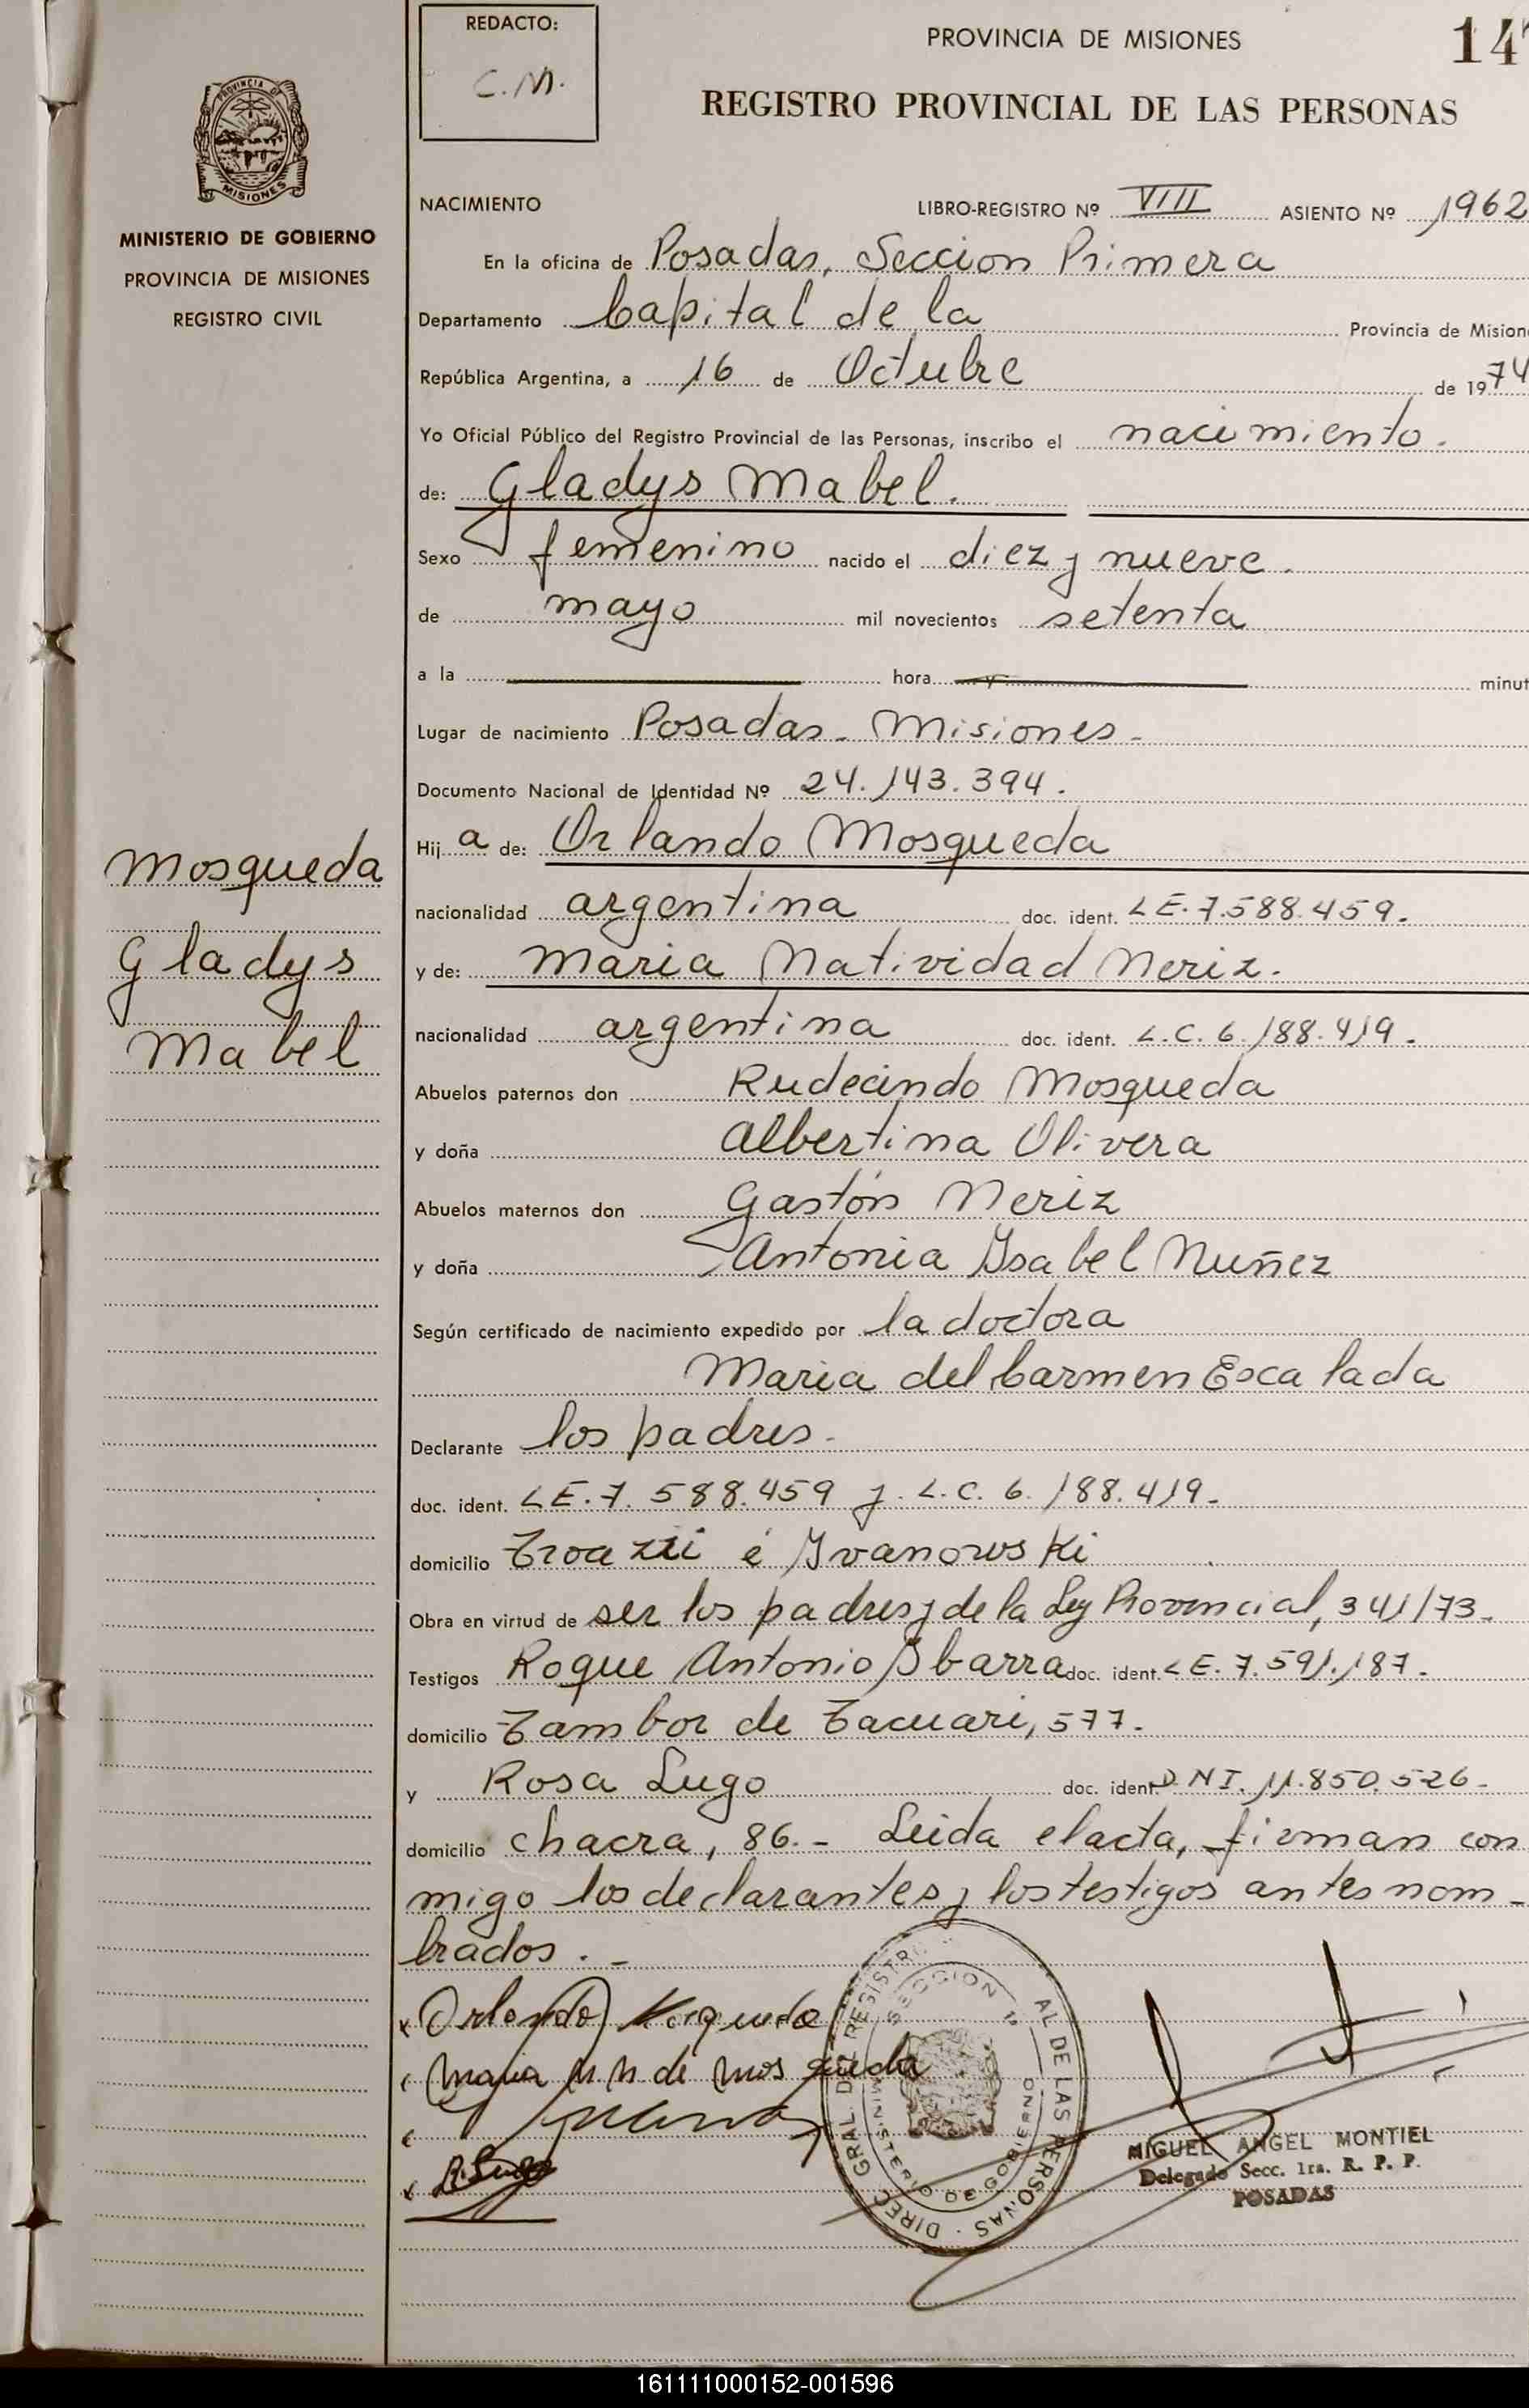 REDACTO:
C.M.
PROVINCIA DE MISIONES
14
REGISTRO PROVINCIAL DE LAS PERSONAS
PROVINCIA DE
MISIONES
MINISTERIO DE GOBIERNO
PROVINCIA DE MISIONES
REGISTRO CIVIL
NACIMIENTO LIBRO-REGISTRO Nº VIII ASIENTO Nº 1962
En la oficina de Posadas, Seccion Primera
Departamento Capital de la Provincia de Mision
República Argentina, a 16 de Octubre de 1974
Yo Oficial Público del Registro Provincial de las Personas, inscribo el nacimiento.
de: Gladys Mabel.
Sexo femenino nacido el diez y nueve.
de mayo mil novecientos setenta
a la hora y minut
Lugar de nacimiento Posadas - Misiones -
Documento Nacional de Identidad Nº 24.143.394.
Hij a de: Orlando Mosqueda
nacionalidad argentina doc. ident. LE. 7.588.459.
y de: Maria Natividad Neriz.
nacionalidad argentina doc. ident. L.C. 6.188.419.
Abuelos paternos don Rudecindo Mosqueda
y doña Albertina Olivera
Abuelos maternos don Gastón Neriz
y doña Antonia Ysabel Nuñez
Según certificado de nacimiento expedido por la doctora
Maria del Carmen Escalada
Declarante los padres -
doc. ident. LE. 7.588.459 y L.C. 6.188.419 -
domicilio é Yvanowski
Obra en virtud de ser los padres y de la Ley Provincial, 341/73 -
Testigos Roque Antonio Ybarra doc. ident. LE. 7.591.187 -
domicilio Tambor de Tacuari, 577.
y Rosa Lugo doc. ident. DNI. 11.850.526 -
domicilio chacra, 86.- Leida el acta, firman con
migo los declarantes y los testigos antes nom-
brados. -
Mosqueda
Gladys
Mabel
Orlando Mosqueda
Maria N N de Mosqueda
R. Lugo
DIREC. GRAL. DEL REGISTRO AL DE LAS PERSONAS
SECCION 1ª
MINISTERIO DE GOBIERNO
MIGUEL ANGEL MONTIEL
Delegado Secc. 1ra. R. P. P.
POSADAS
161111000152-001596